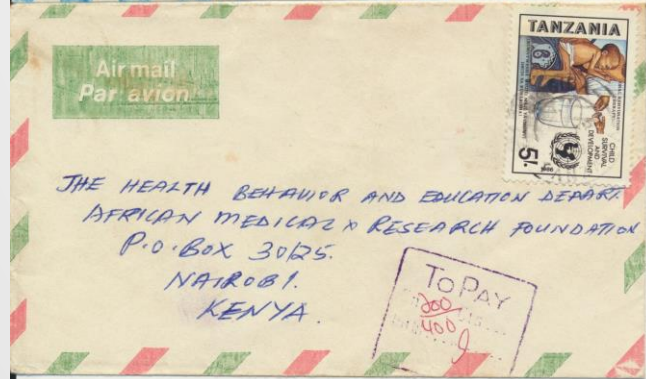 Air mail
Par avion
TANZANIA
CHILD
SURVIVAL
AND
DEVELOPMENT
5/-
THE HEALTH BEHAVIOR AND EDUCATION DEPART.
AFRICAN MEDICAL & RESEARCH FOUNDATION
P.O. BOX 30125.
NAIROBI.
KENYA.
TO PAY
200
400